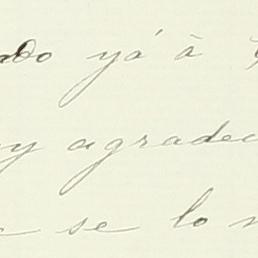 do yá à
y agradec
se lo